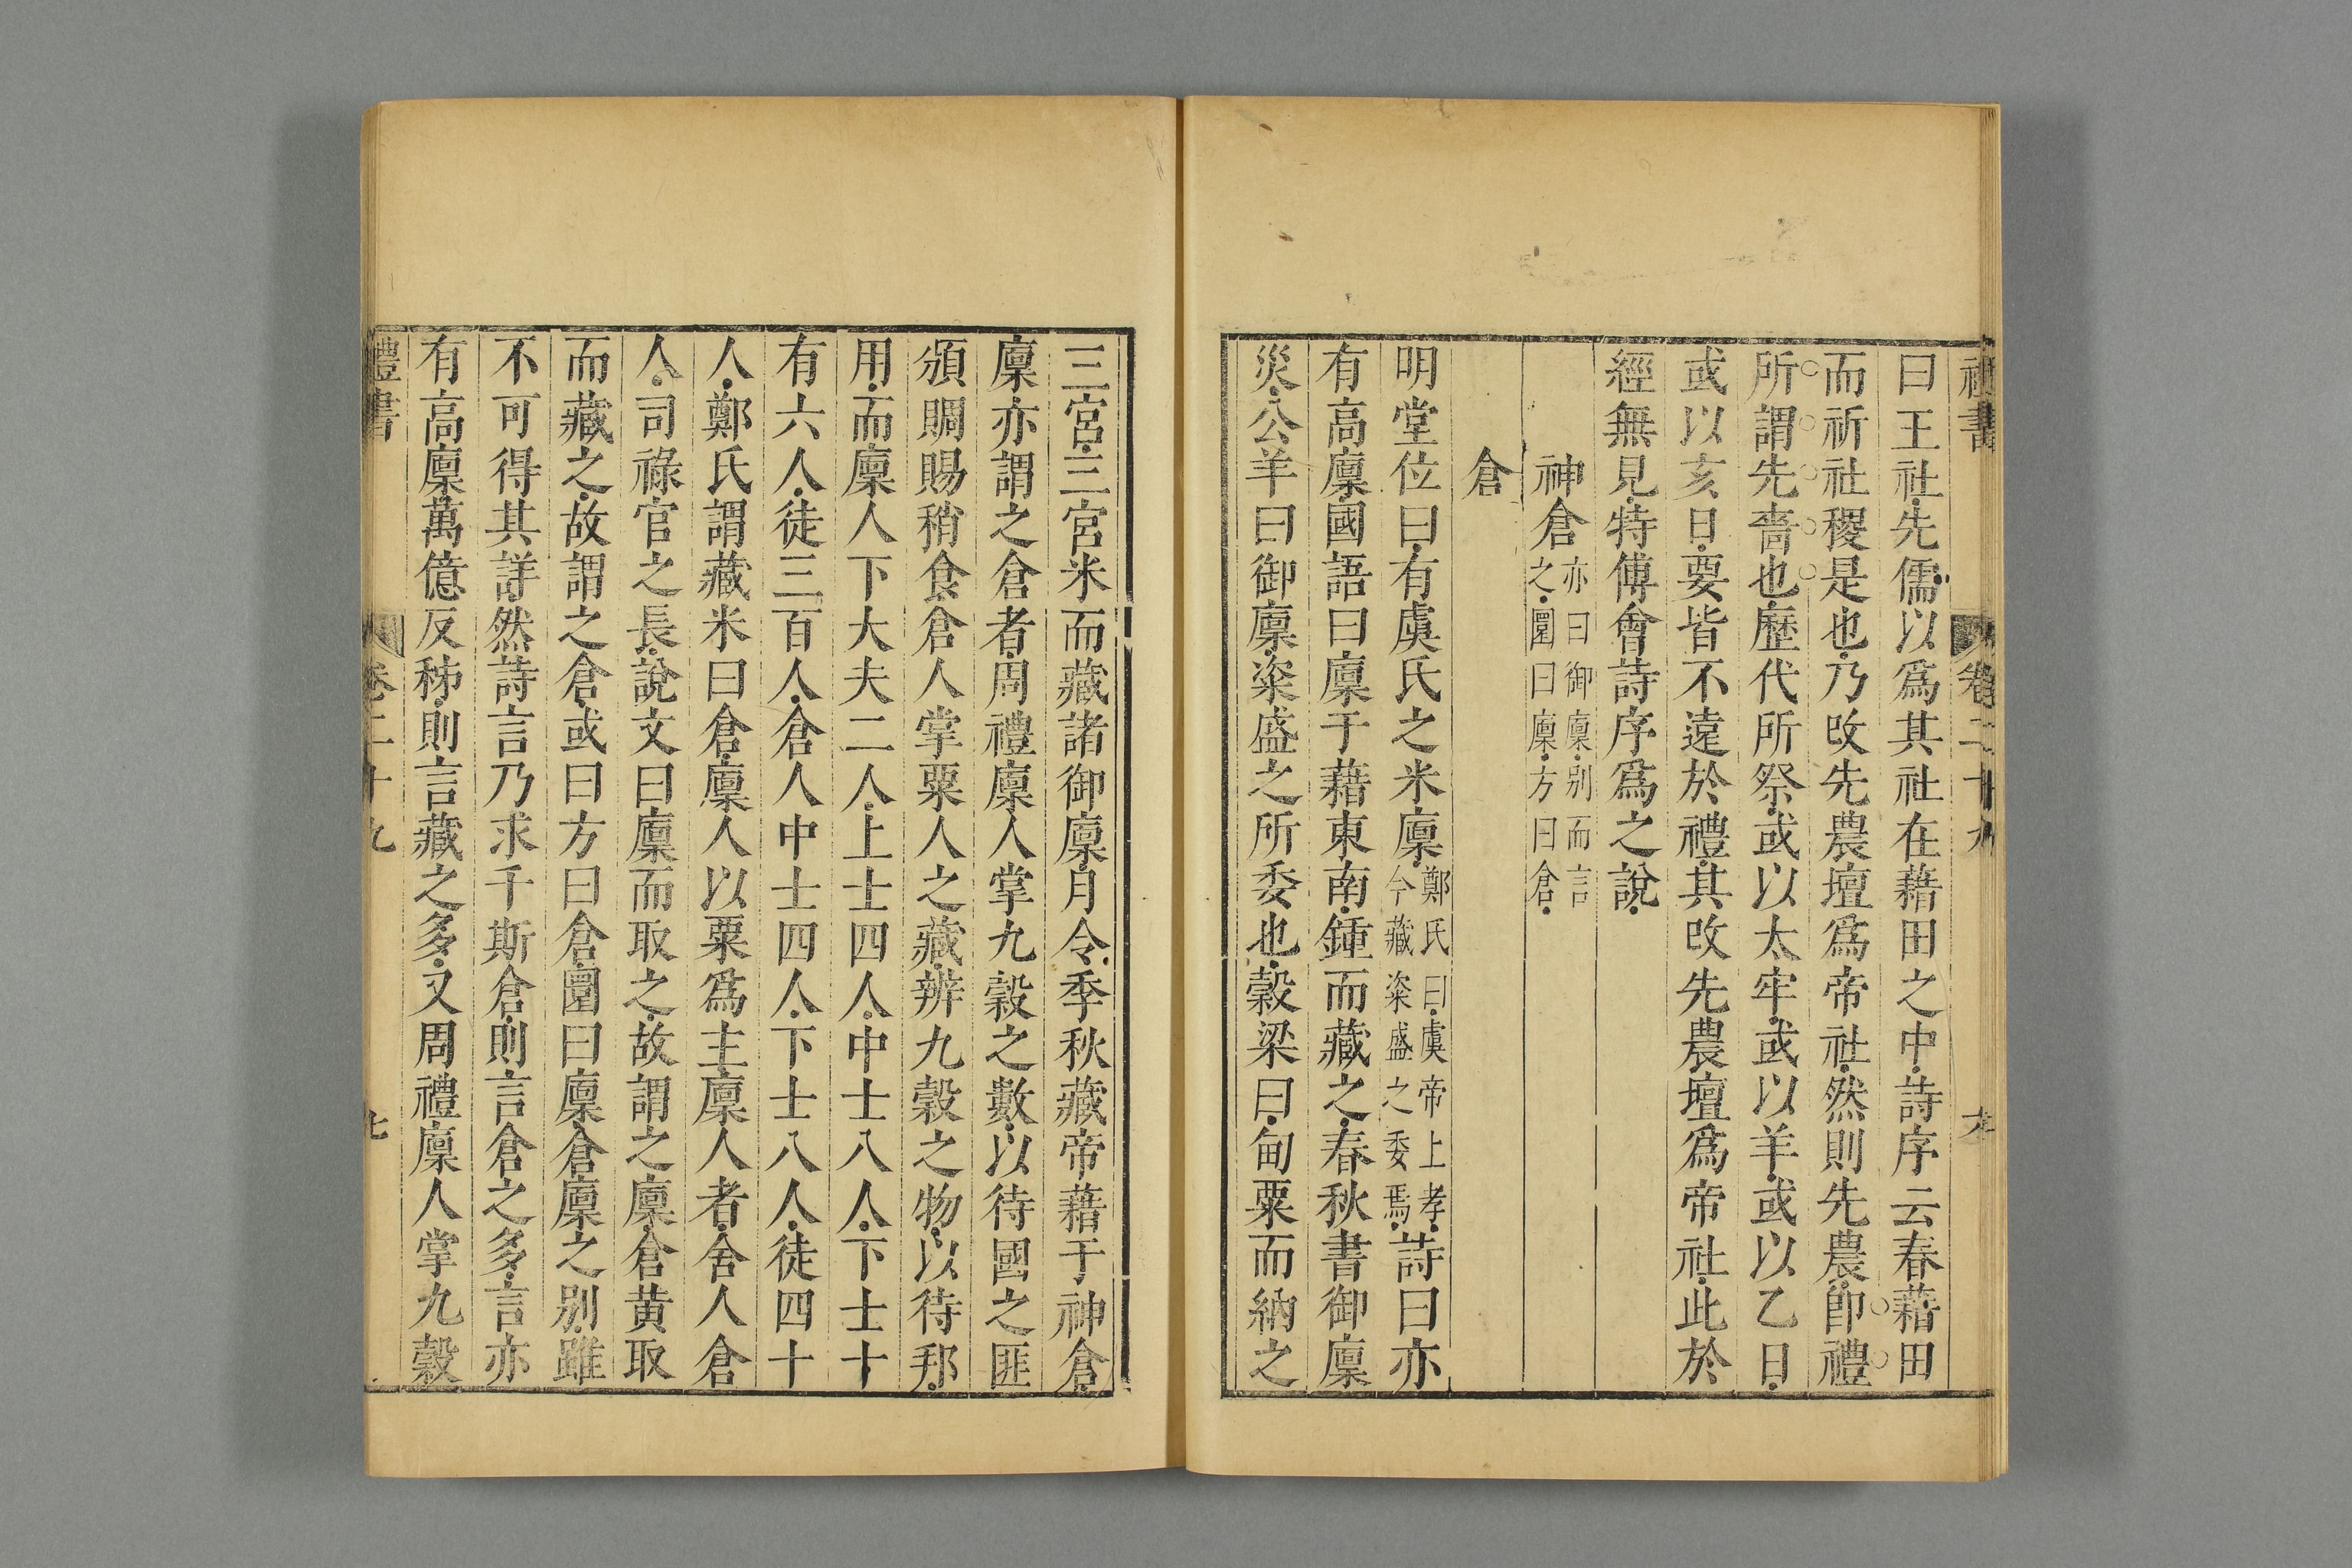 禮書 卷二十九
曰王社先儒以爲其社在藉田之中詩序云春藉田
而祈社稷是也乃改先農壇爲帝社然則先農卽禮
所謂先嗇也歷代所祭或以太牢或以羊或以乙日
或以亥日要皆不遠於禮其改先農壇爲帝社此於
經無見特傅會詩序爲之說
神倉亦曰御廩別而言之圜曰廩方曰倉
倉
明堂位曰有虞氏之米廩鄭氏曰虞帝上孝今藏粢盛之委焉詩曰亦
有高廩國語曰廩于藉東南鍾而藏之春秋書御廩
災公羊曰御廩粢盛之所委也穀梁曰甸粟而納之
三宮三宮米而藏諸御廩月令季秋藏帝藉于神倉
廩亦謂之倉者周禮廩人掌九穀之數以待國之匪
頒賙賜稍食倉人掌粟人之藏辨九穀之物以待邦
用而廩人下大夫二人上士四人中士八人下士十
有六人徒三百人倉人中士四人下士八人徒四十
人鄭氏謂藏米曰倉廩人以粟爲主廩人者舍人倉
人司祿官之長說文曰廩而取之故謂之廩倉黃取
而藏之故謂之倉或曰方曰倉圜曰廩倉廩之別雖
不可得其詳然詩言乃求千斯倉則言倉之多言亦
有高廩萬億反秭則言藏之多又周禮廩人掌九穀
禮書 卷二十九